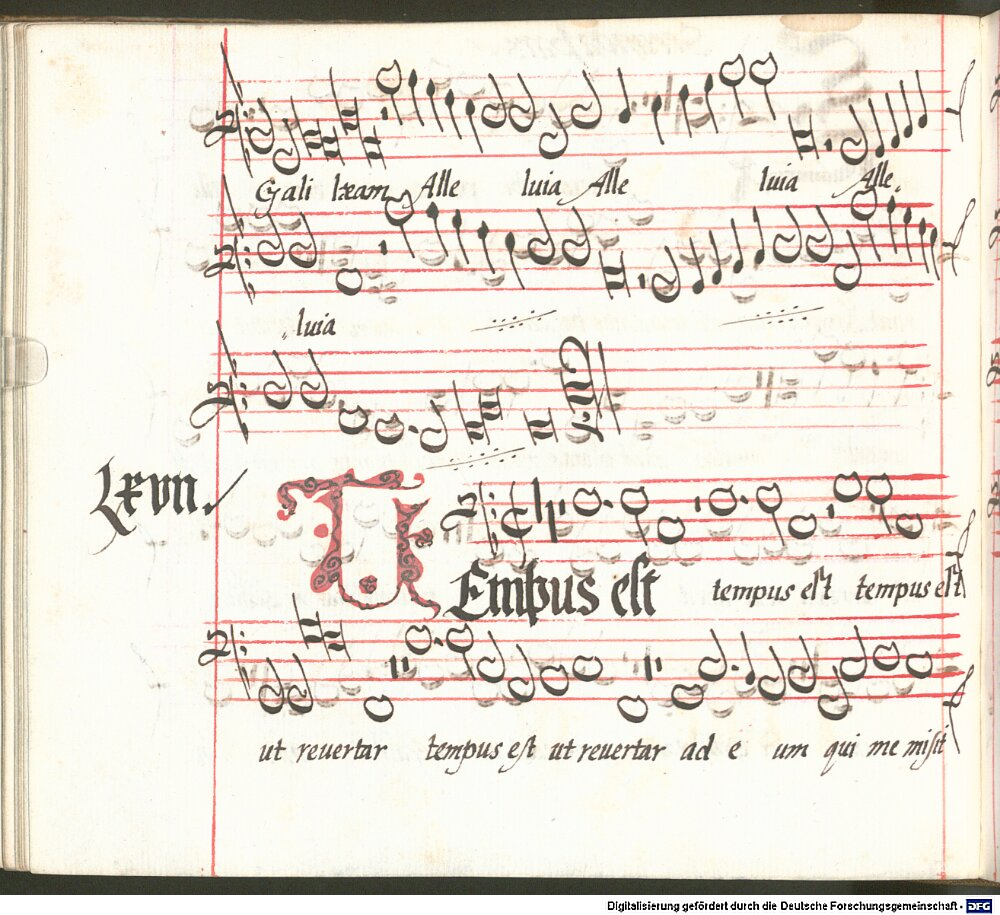 Gali læam Alle luia Alle luia Alle„
„luia
Lxvii.
TEmpus est tempus est tempus est
ut reuertar tempus est ut reuertar ad e um qui me misit
Digitalisierung gefördert durch die Deutsche Forschungsgemeinschaft - DFG